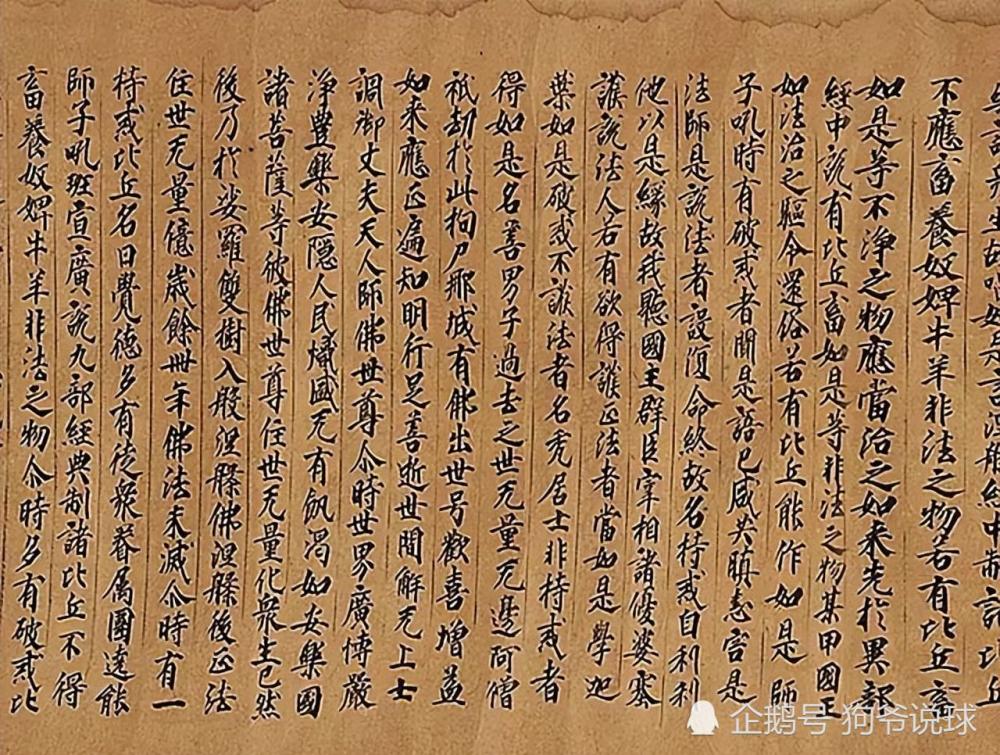 如是言涅槃經中制諸比丘
不應畜養奴婢牛羊非法之物若有比丘畜
如是等不淨之物應當治之如來先於異部
經中說有比丘畜如是等非法之物某甲國王
如法治之驅令還俗若有比丘能作如是師
子吼時有破戒者聞是語已咸共瞋恚害是
法師是說法者設復命終故名持戒自利利
他以是緣故我聽國主群臣宰相諸優婆塞
護說法人若有欲得護正法者當如是學迦
葉如是破戒不護法者名禿居士非持戒者
得如是名善男子過去之世无量无邊阿僧
祇劫於此拘尸那城有佛出世号歡喜增益
如來應正遍知明行足善逝世間解无上士
調御丈夫天人師佛世尊尒時世界廣博嚴
淨豐樂安隱人民熾盛无有飢渴如安樂國
諸菩薩等彼佛世尊住世无量化衆生已然
後乃於娑羅雙樹入般涅槃佛涅槃後正法
住世无量億歲餘卌年佛法未滅尒時有一
持戒比丘名曰覺德多有徒衆眷属圍遶能
師子吼班宣廣說九部經典制諸比丘不得
畜養奴婢牛羊非法之物尒時多有破戒比
企鹅号 狗爷说球